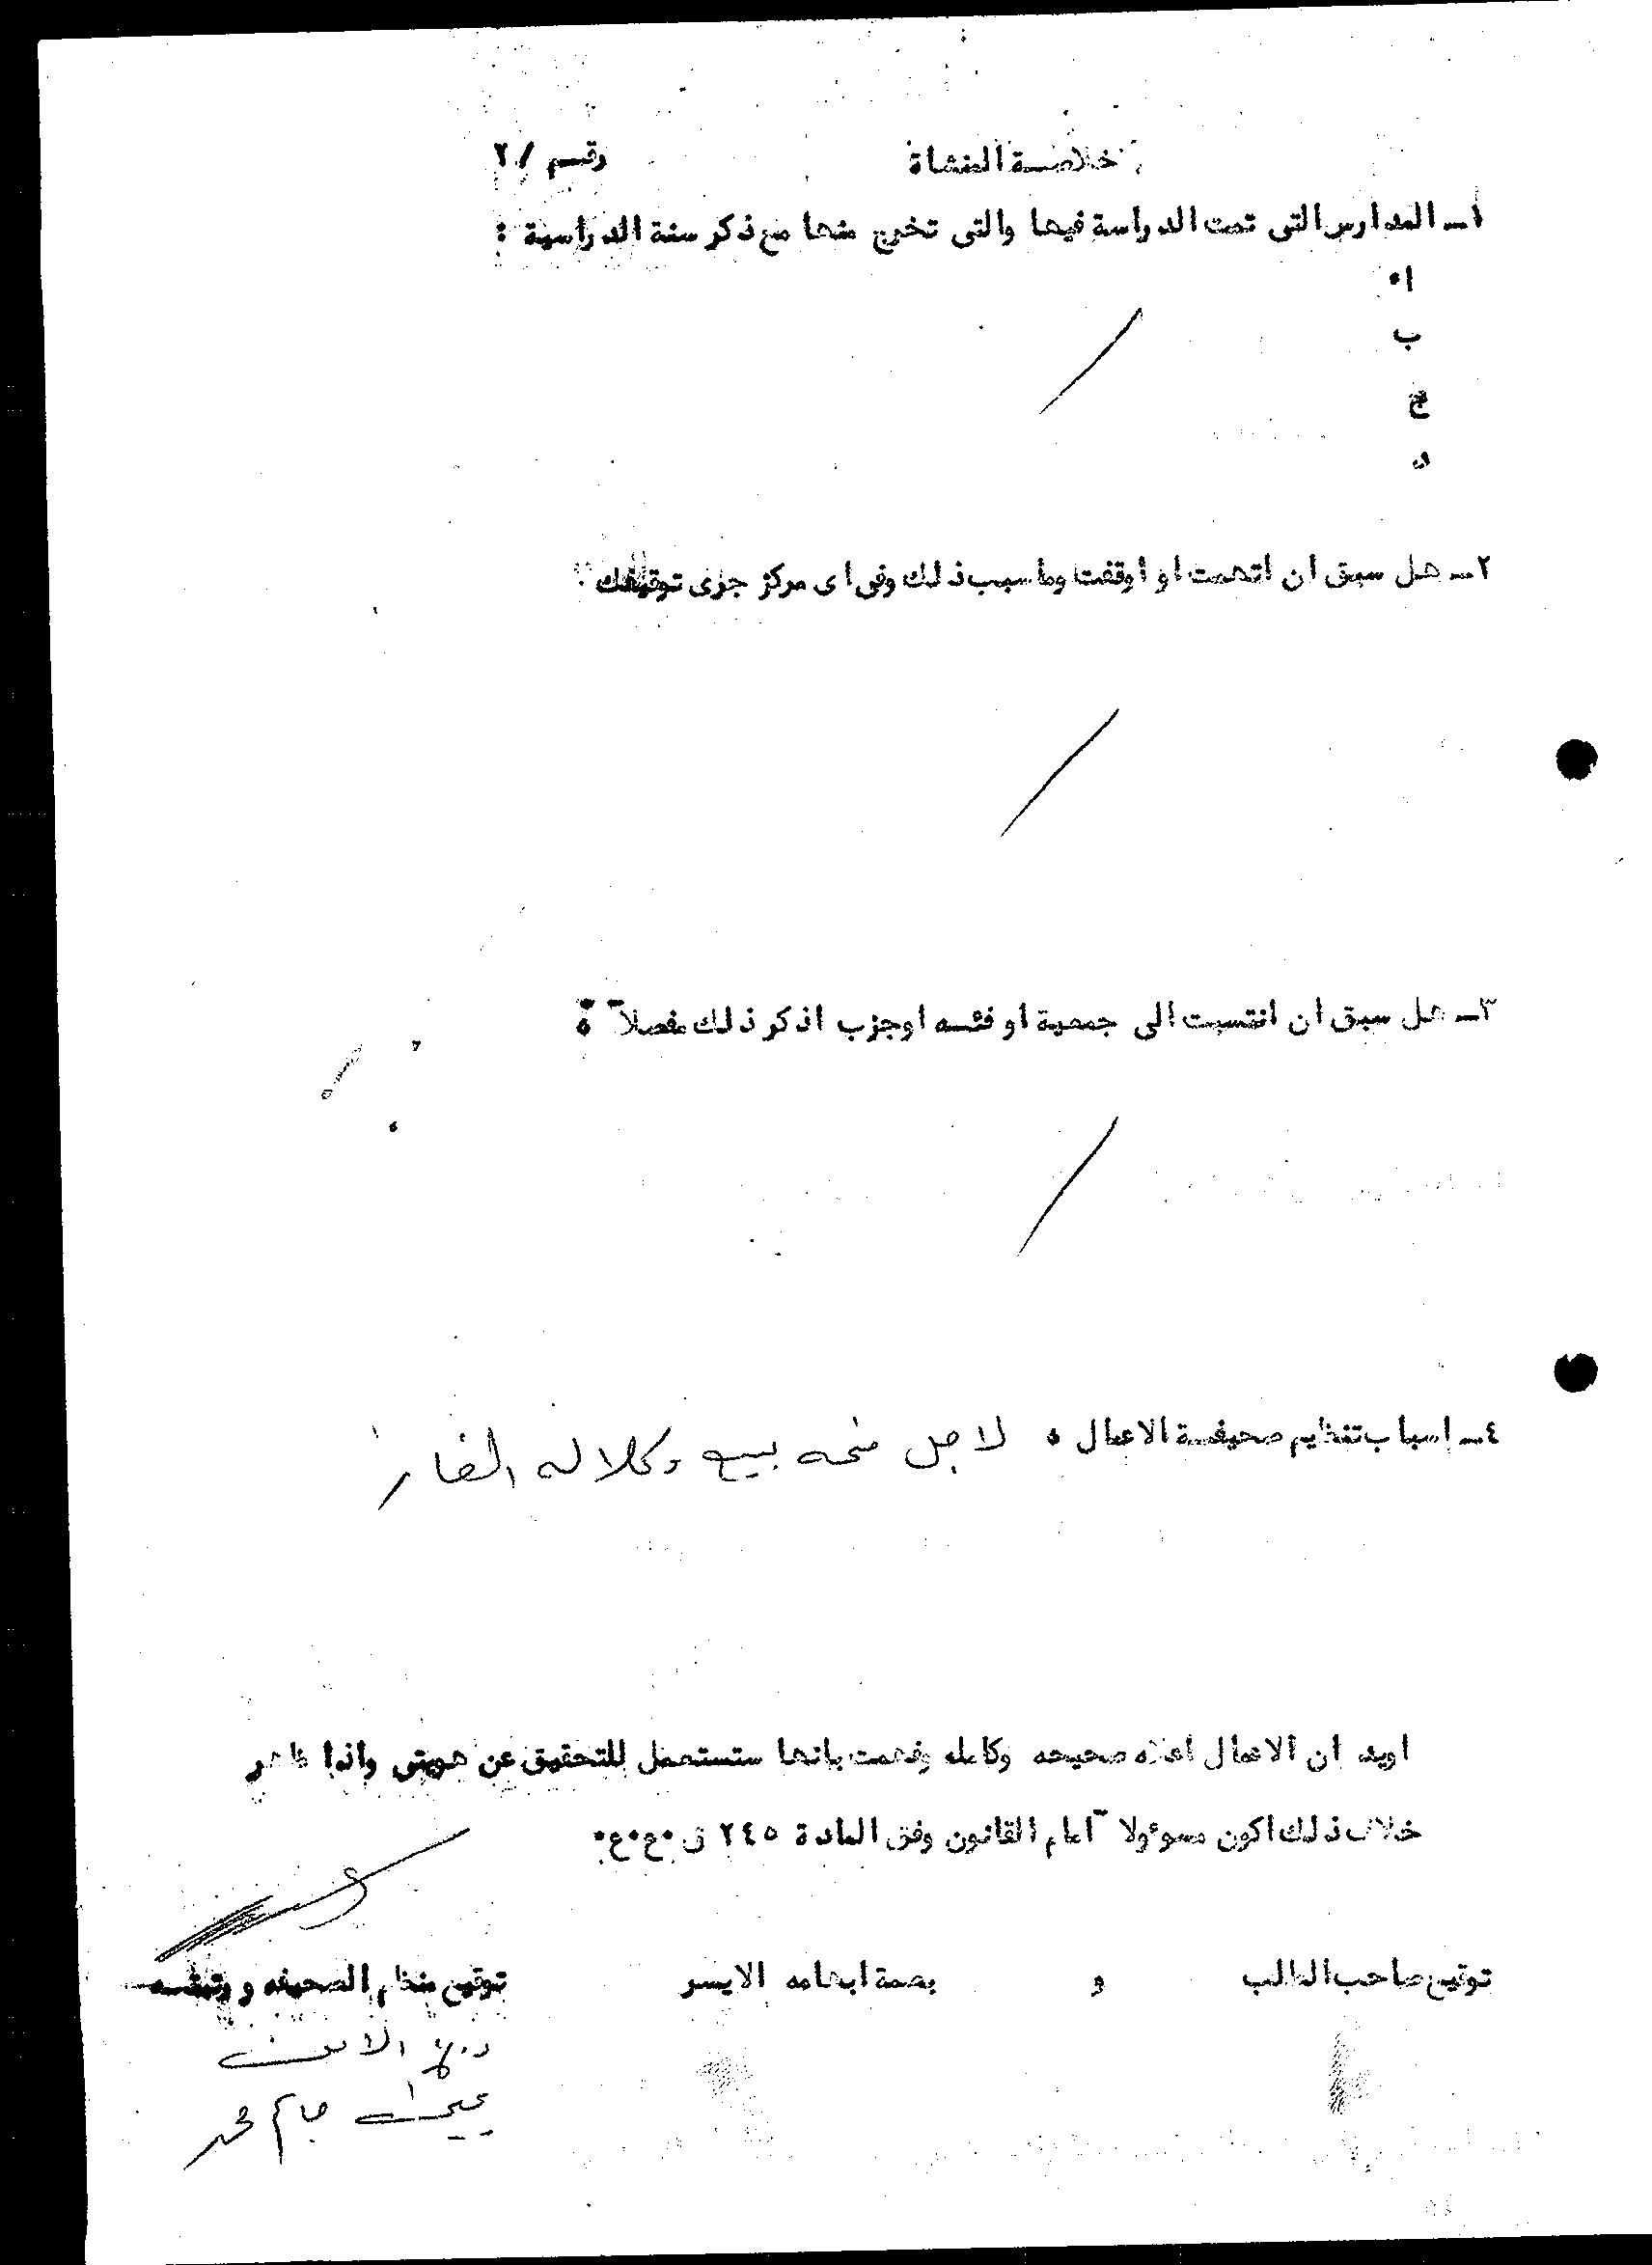 خلاصة المنشاة رقم /٢
١ـ المدارس التى تمت الدراسة فيها والتى تخرج منها مع ذكر سنة الدراسية :
ا٠
ب
ج
د
٢ـ هل سبق ان اتهمت او اوقفت وما سبب ذلك وفى اى مركز جرى توقيفك
٣ـ هل سبق ان انتسبت الى جمعية او فئسه اوجزب اذكر ذلك مفصلاً
٤ـ اسباب تنظيم صحيفة الاعمال ٠ لاجل منحه بيع وكلاله الغاز
اويد ان الاعمال اعلاه صحيحه وكامله وفهمت بانها ستستعمل للتحقيق عن هويتى واذا ظهر
خلاف ذلك اكون مسوءولا ً امام القانون وفق المادة ٢٤٥ ق٠ع٠ع٠
توقيع صاحب الطلب و بصمة ابهامه الايسر توقيع منظم الصحيفه و رتبته
الامن
محمد